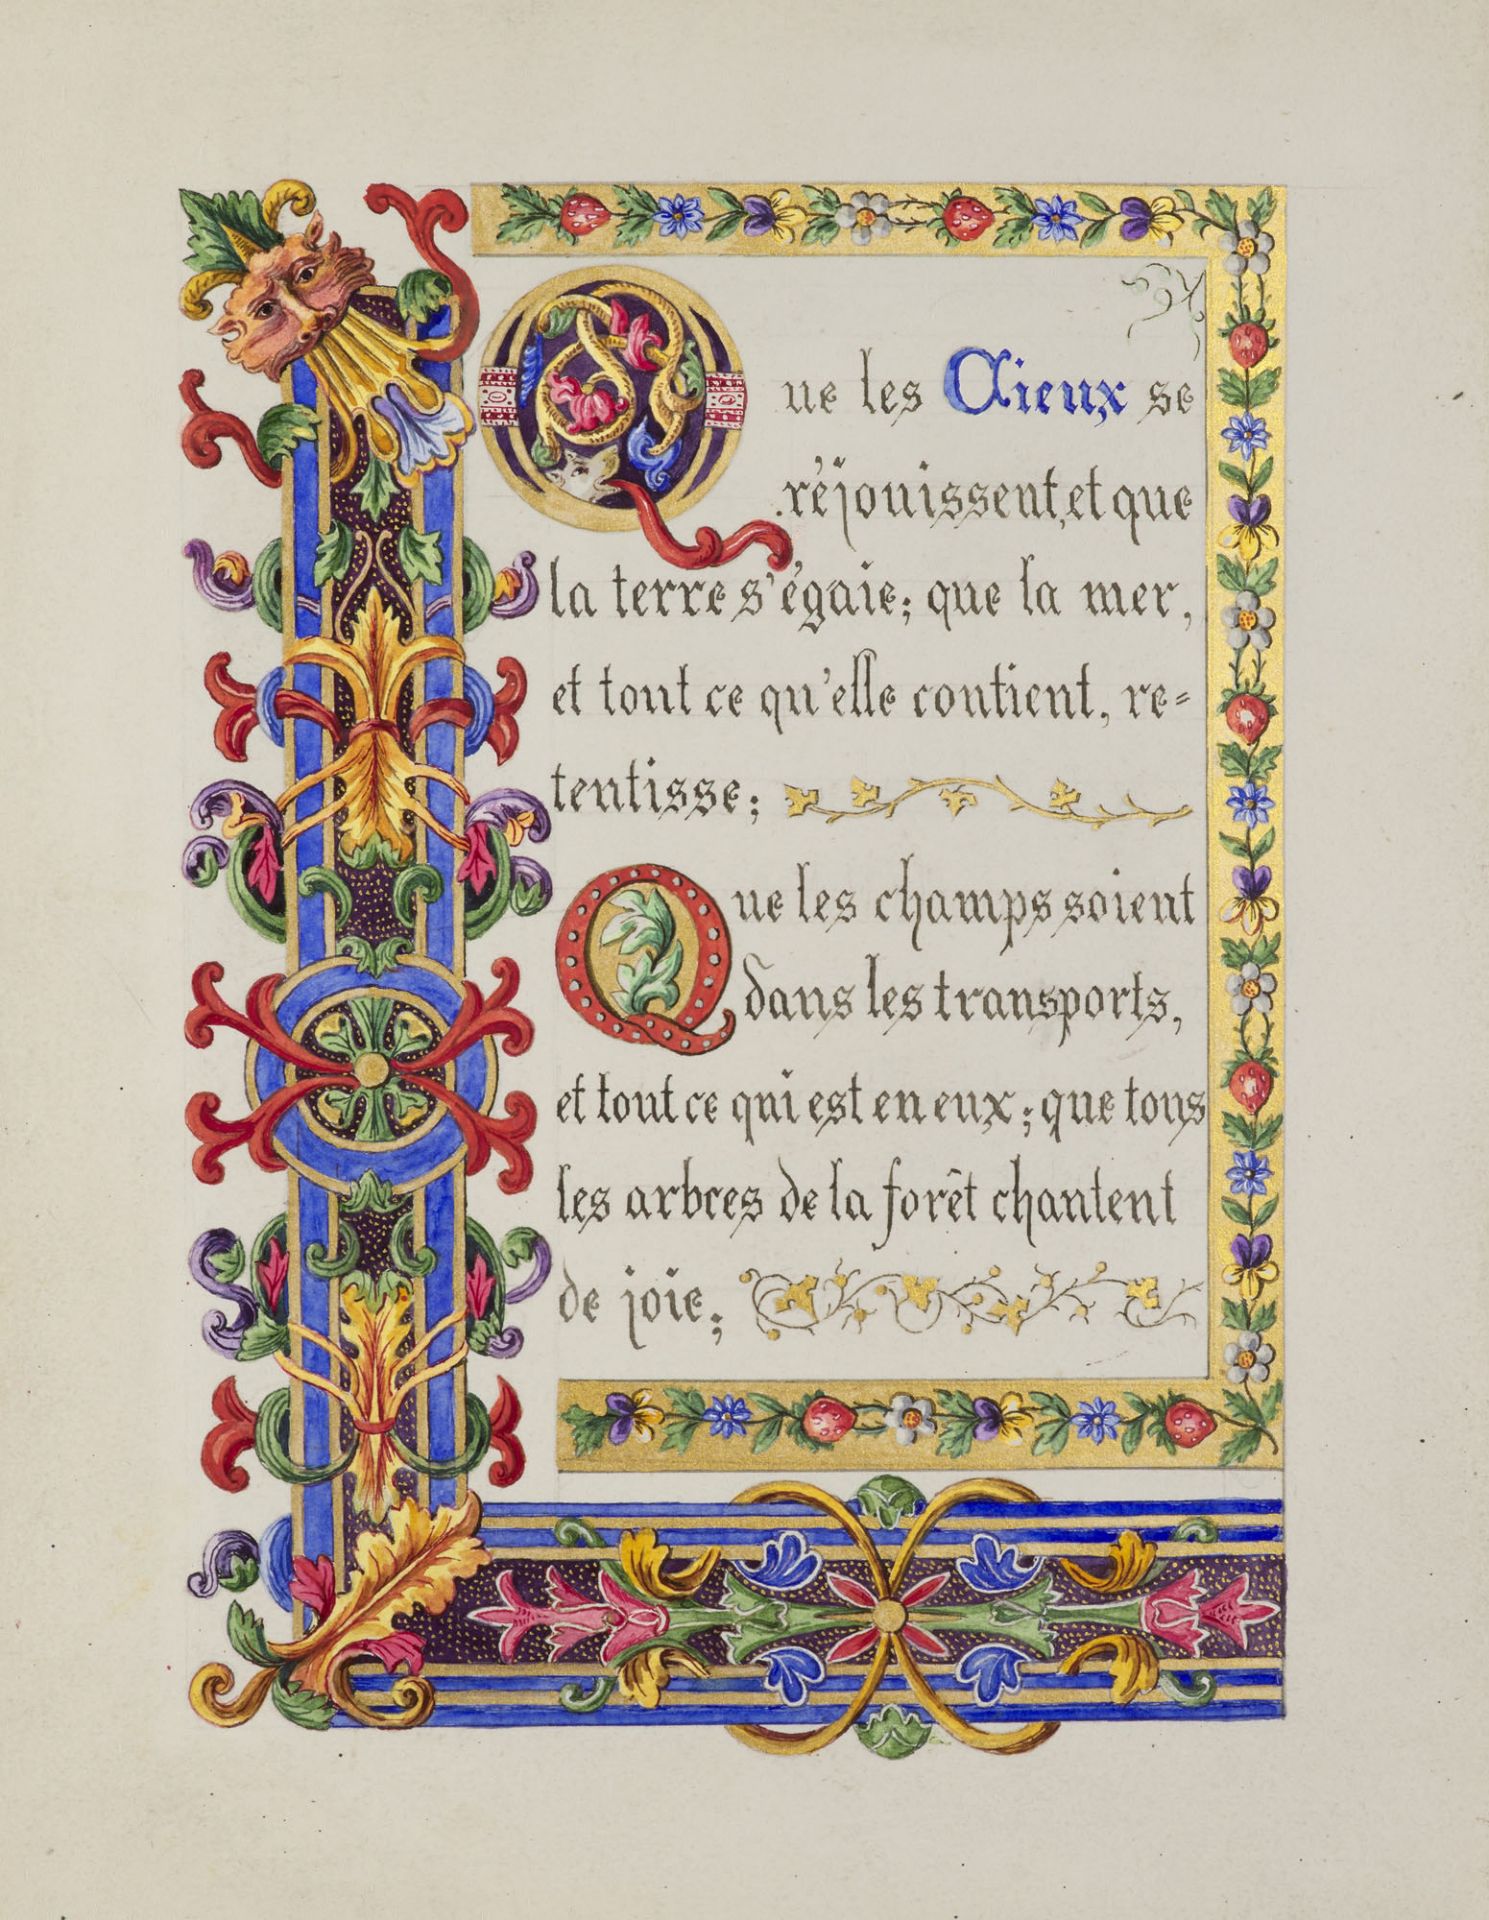 Que les Cieux se
réjouissent, et que
la terre s'égaie; que la mer,
et tout ce qu'elle contient, re=
tentisse;
Que les champs soient
dans les transports,
et tout ce qui est en eux; que tous
les arbres de la forêt chantent
de joie;